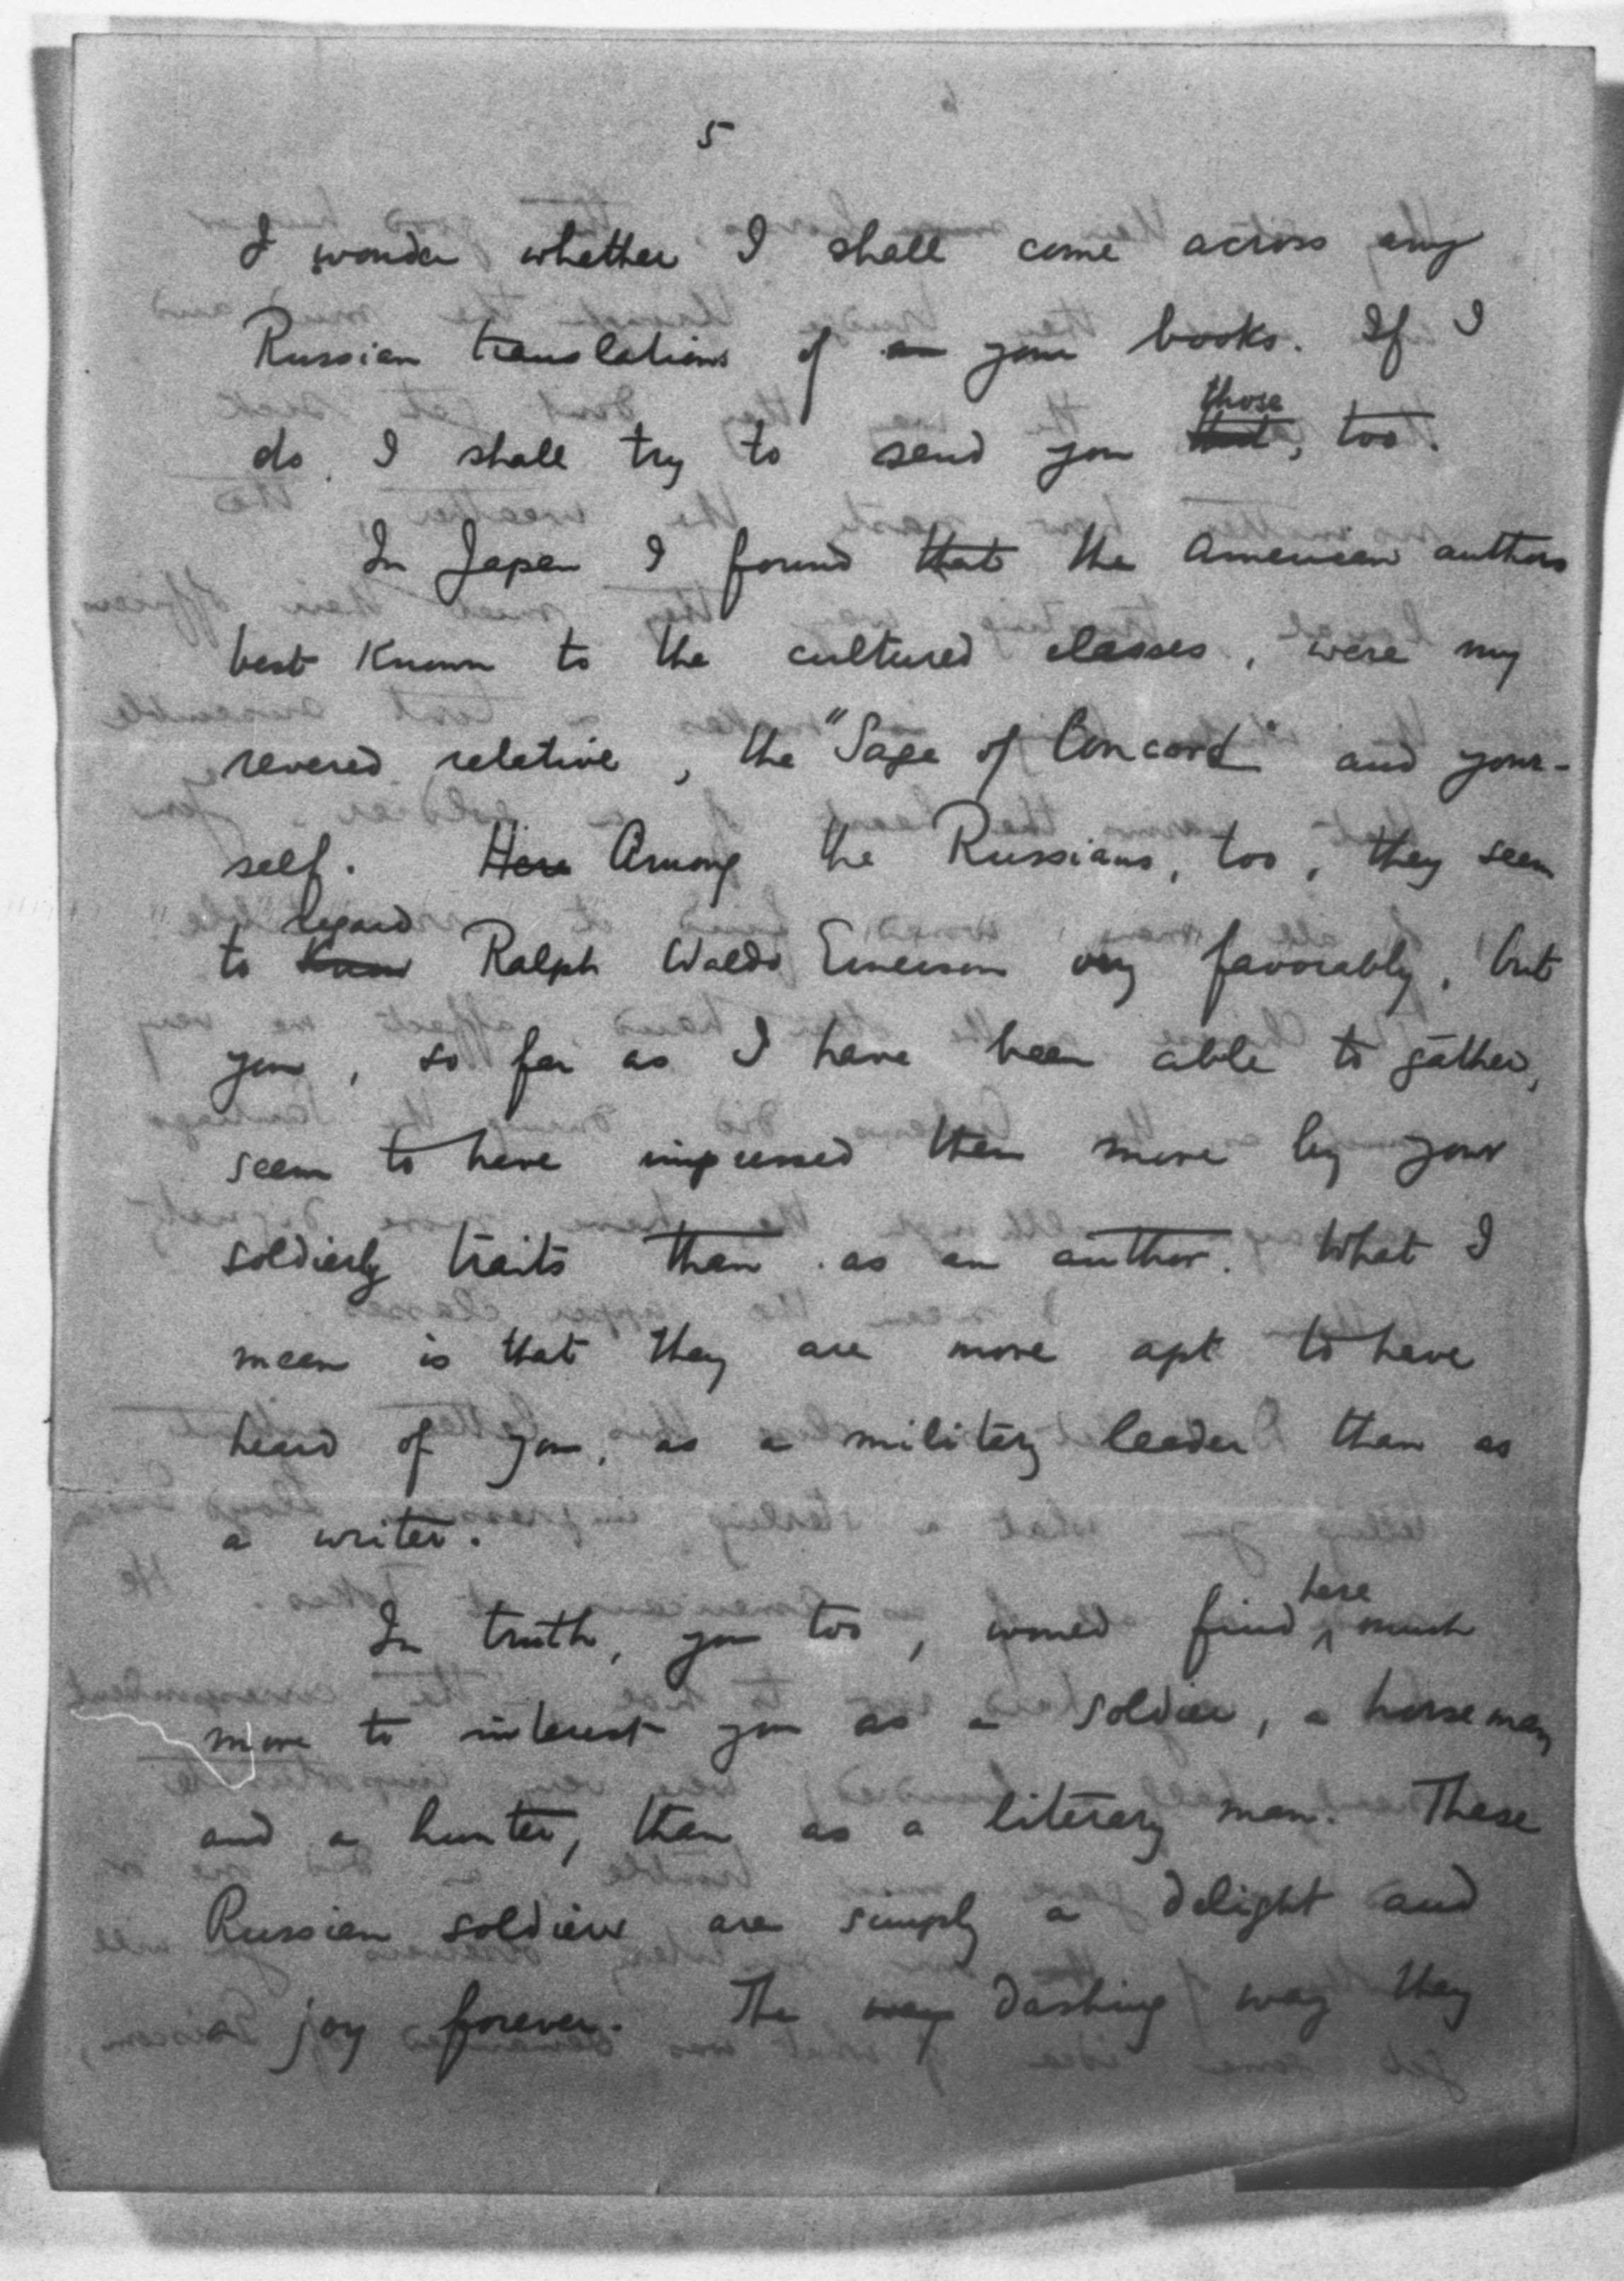 5
I wonder whether I shall come across any
Russian translations of an your books. If I
do, I shall try to send you that those, too.
In Japan I found that the American authors
best known to the cultured classes, were my
revered relative, the "Sage of Concord" and your-
self. Here Among the Russians, too, they seem
to know regard Ralph Waldo Emerson very favorably, but
you, so far as I have been able to gather,
seem to have impressed them more by your
soldierly traits than as an author. What I
mean is that they are more apt to have
heard of you, as a military leader than as
a writer.
In truth, you too, would find here much
more to interest you as a soldier, a horseman
and a hunter, than as a literary man. These
Russian soldiers are simply a delight and
a joy forever. The way dashing way they